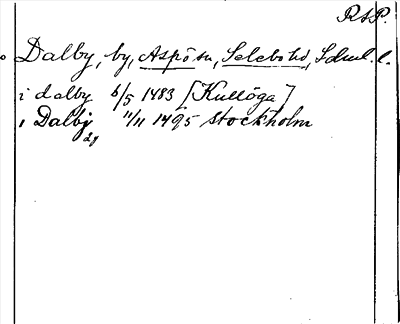 R A P.
Dalby, by, Aspö sn, Selebo hd, Södml. l.
i dalby 6/5 1483 [Kullöga]
i Dalby 11/11 1495 Stockholm
24